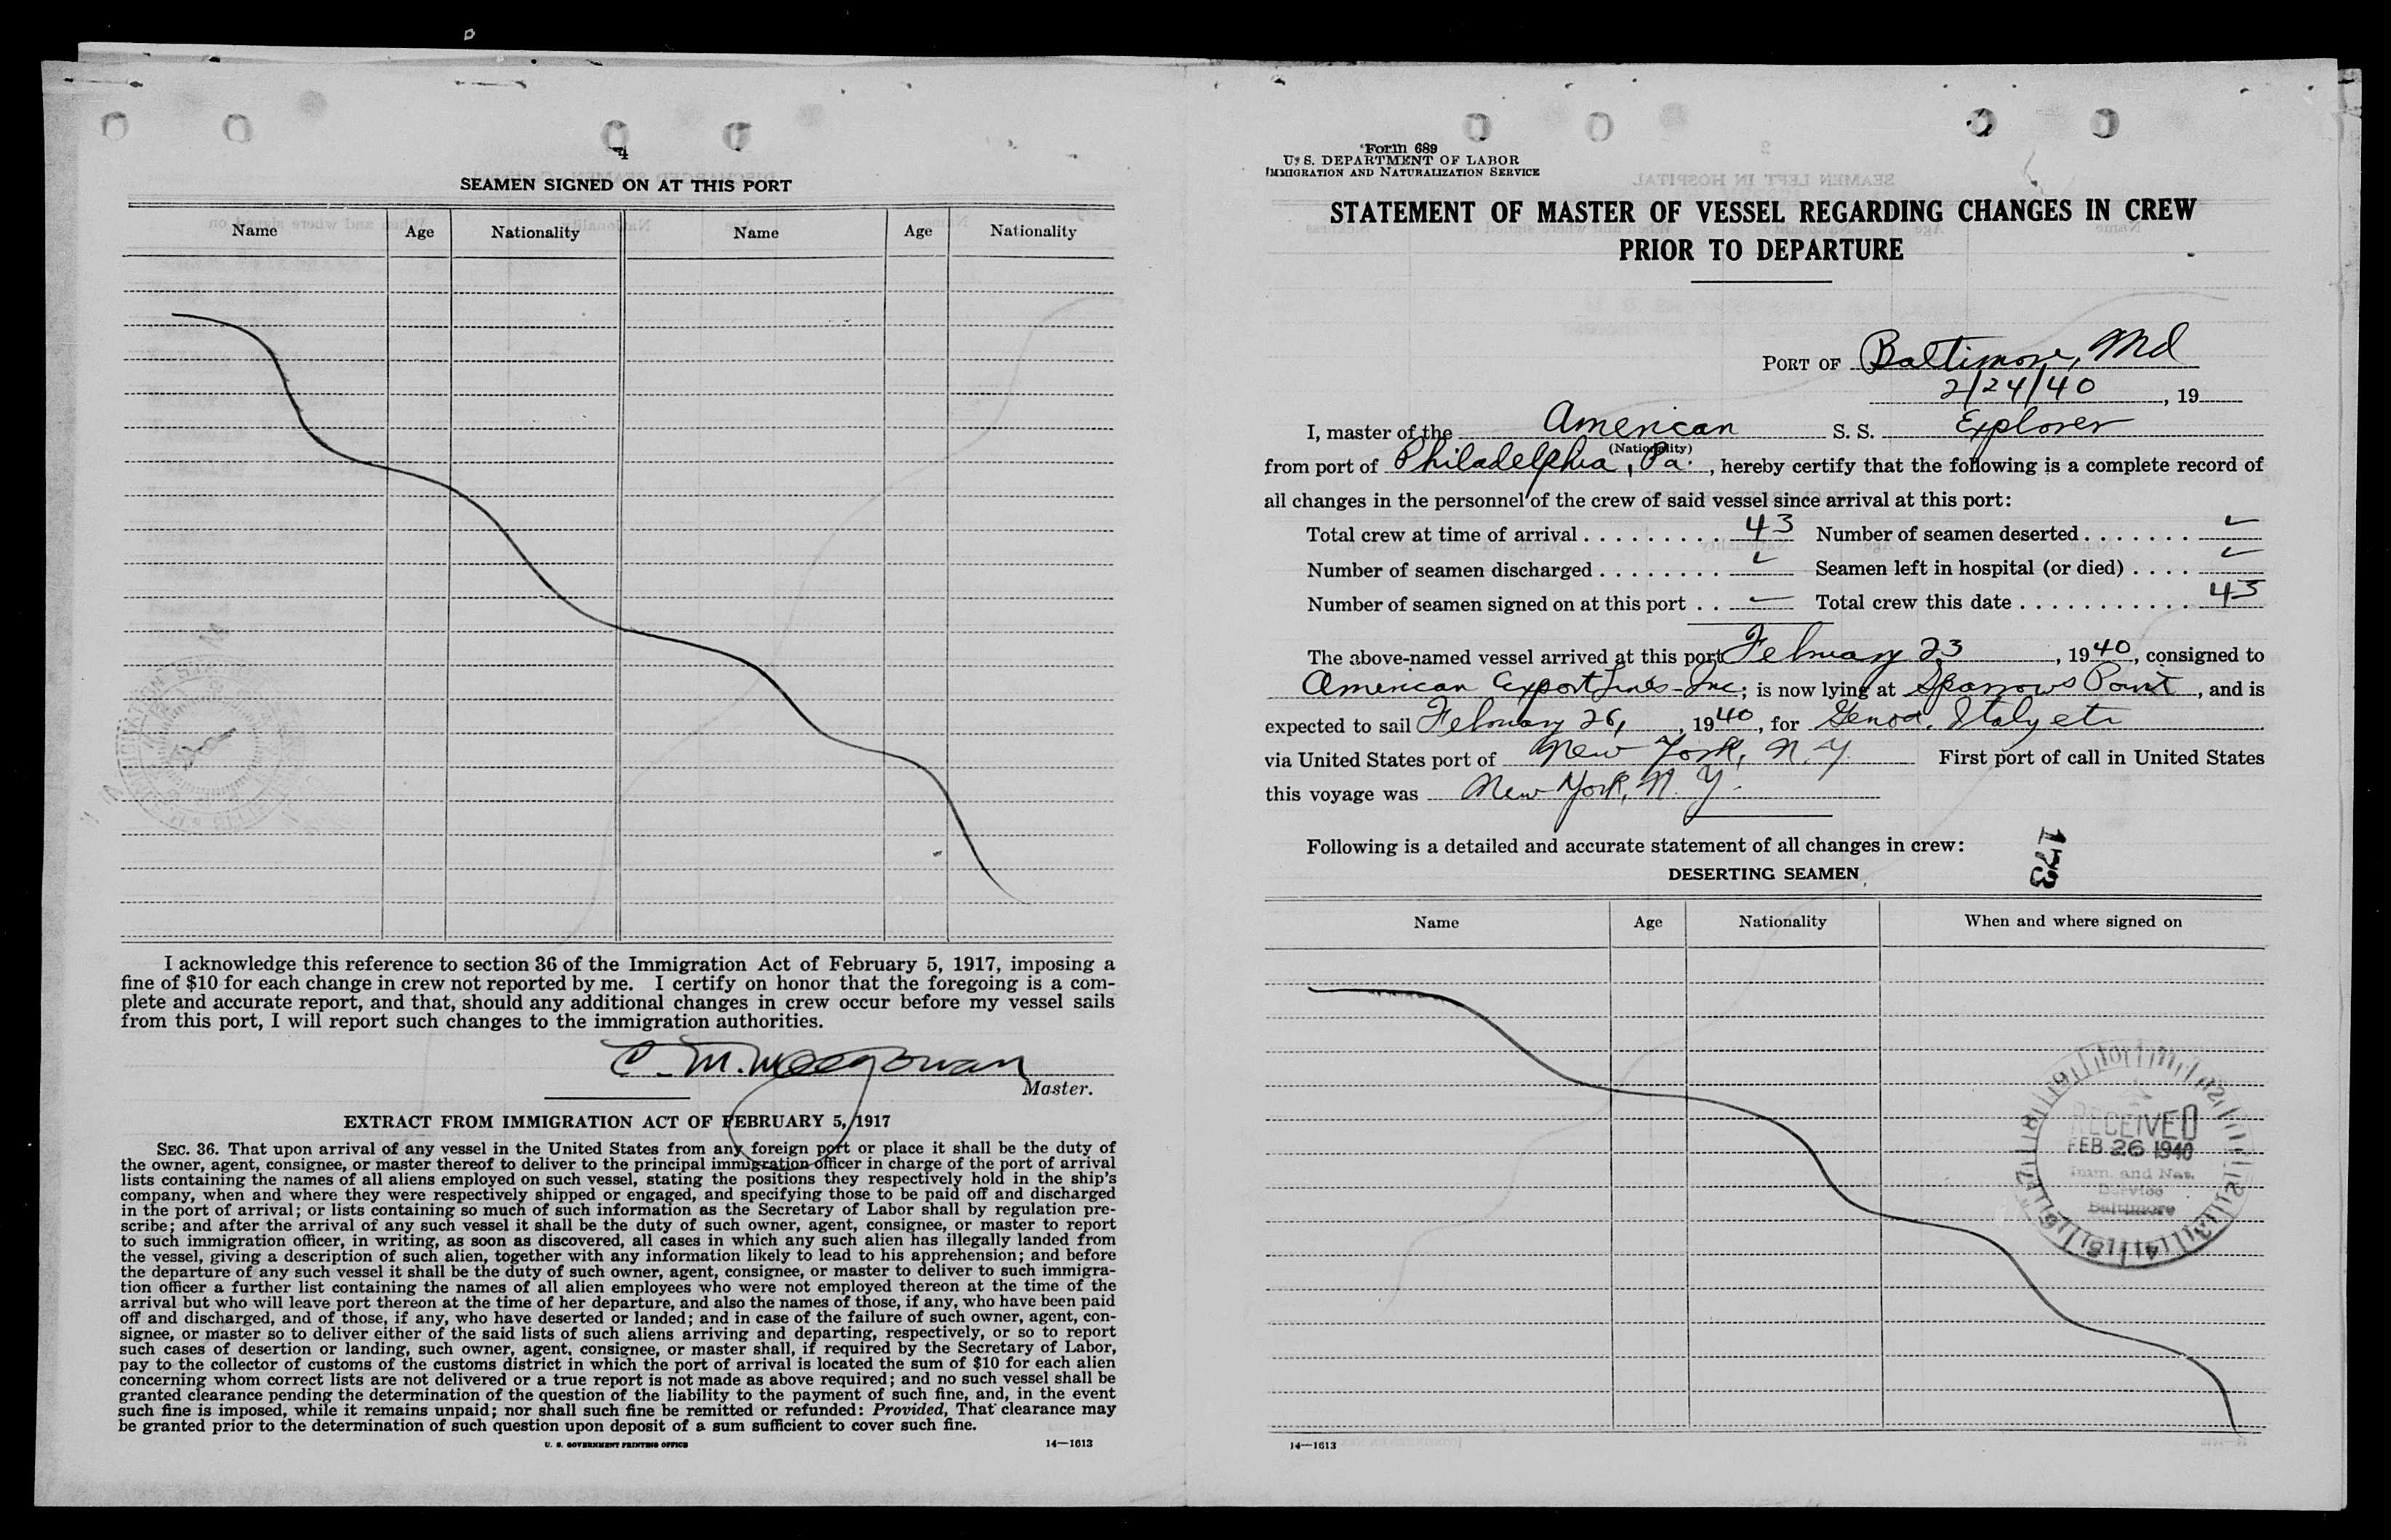 4
SEAMEN SIGNED ON AT THIS PORT
Name Age Nationality Name Age Nationality
I acknowledge this reference to section 36 of the Immigration Act of February 5, 1917, imposing a
fine of $10 for each change in crew not reported by me. I certify on honor that the foregoing is a com-
plete and accurate report, and that, should any additional changes in crew occur before my vessel sails
from this port, I will report such changes to the immigration authorities.
C. M.
Master.
EXTRACT FROM IMMIGRATION ACT OF FEBRUARY 5, 1917
SEC. 36. That upon arrival of any vessel in the United States from any foreign port or place it shall be the duty of
the owner, agent, consignee, or master thereof to deliver to the principal immigration officer in charge of the port of arrival
lists containing the names of all aliens employed on such vessel, stating the positions they respectively hold in the ship's
company, when and where they were respectively shipped or engaged, and specifying those to be paid off and discharged
in the port of arrival; or lists containing so much of such information as the Secretary of Labor shall by regulation pre-
scribe; and after the arrival of any such vessel it shall be the duty of such owner, agent, consignee, or master to report
to such immigration officer, in writing, as soon as discovered, all cases in which any such alien has illegally landed from
the vessel, giving a description of such alien, together with any information likely to lead to his apprehension; and before
the departure of any such vessel it shall be the duty of such owner, agent, consignee, or master to deliver to such immigra-
tion officer a further list containing the names of all alien employees who were not employed thereon at the time of the
arrival but who will leave port thereon at the time of her departure, and also the names of those, if any, who have been paid
off and discharged, and of those, if any, who have deserted or landed; and in case of the failure of such owner, agent, con-
signee, or master so to deliver either of the said lists of such aliens arriving and departing, respectively, or so to report
such cases of desertion or landing, such owner, agent, consignee, or master shall, if required by the Secretary of Labor,
pay to the collector of customs of the customs district in which the port of arrival is located the sum of $10 for each alien
concerning whom correct lists are not delivered or a true report is not made as above required; and no such vessel shall be
granted clearance pending the determination of the question of the liability to the payment of such fine, and, in the event
such fine is imposed, while it remains unpaid; nor shall such fine be remitted or refunded: Provided, That clearance may
be granted prior to the determination of such question upon deposit of a sum sufficient to cover such fine.
U. S. GOVERNMENT PRINTING OFFICE 14—1613
Form 689
U. S. DEPARTMENT OF LABOR
IMMIGRATION AND NATURALIZATION SERVICE
STATEMENT OF MASTER OF VESSEL REGARDING CHANGES IN CREW
PRIOR TO DEPARTURE
PORT OF Baltimore, Md
2/24/40, 19
I, master of the American S. S. Explorer
(Nationality)
from port of Philadelphia, Pa., hereby certify that the following is a complete record of
all changes in the personnel of the crew of said vessel since arrival at this port:
Total crew at time of arrival . . . . . . . . . 43 Number of seamen deserted . . . . . . .
Number of seamen discharged . . . . . . . . Seamen left in hospital (or died) . . . .
Number of seamen signed on at this port . . — Total crew this date . . . . . . . . . . . 43
The above-named vessel arrived at this port February 23, 1940, consigned to
American Export Lines - Inc; is now lying at Sparrows Point, and is
expected to sail February 26, 1940, for Genoa, Italy etc
via United States port of New York, N.Y. First port of call in United States
this voyage was New York, N.Y.
Following is a detailed and accurate statement of all changes in crew:
173
DESERTING SEAMEN
Name Age Nationality When and where signed on
RECEIVED
FEB 26 1940
Imm. and Nat.
Service
Baltimore
14—1613